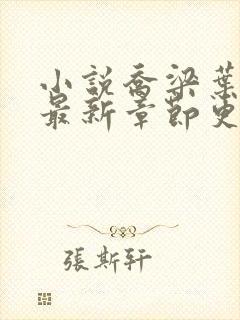 小說喬梁葉
最新章節更
張斯軒